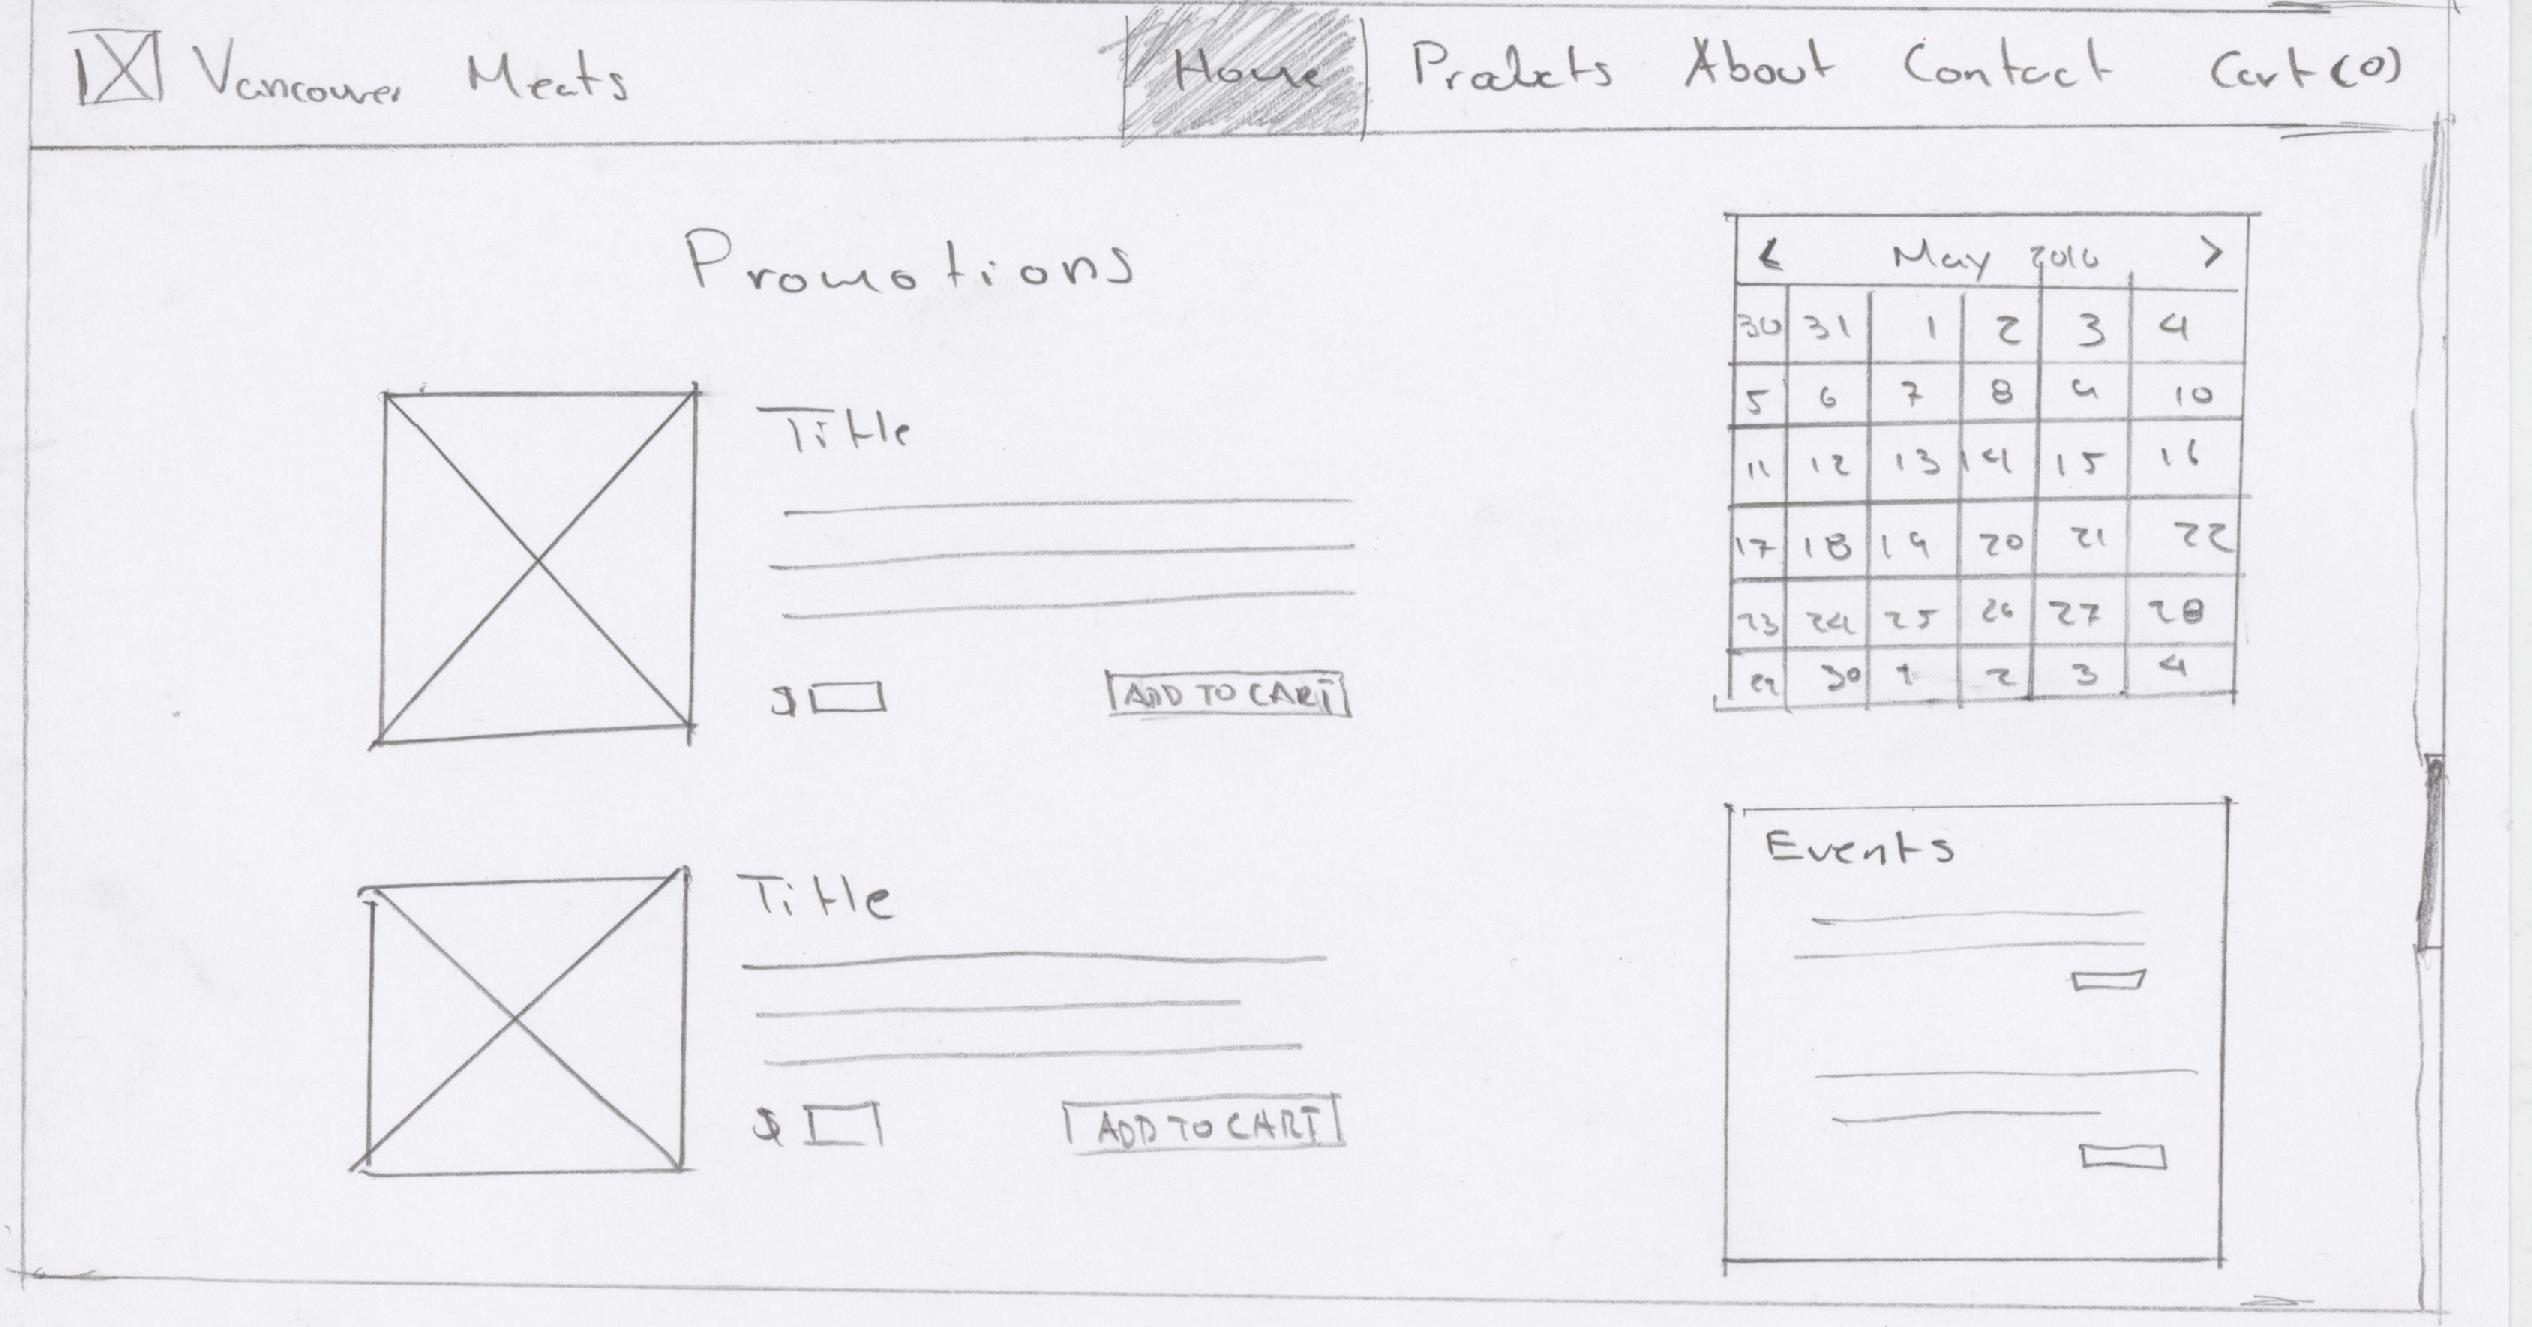 Vancouver Meats
Home Products About Contact Cart (0)
Promotions
Title
$
ADD TO CART
Title
$
ADD TO CART
< May 2016 >
30 31 1 2 3 4
5 6 7 8 9 10
11 12 13 14 15 16
17 18 19 20 21 22
23 24 25 26 27 28
29 30 1 2 3 4
Events